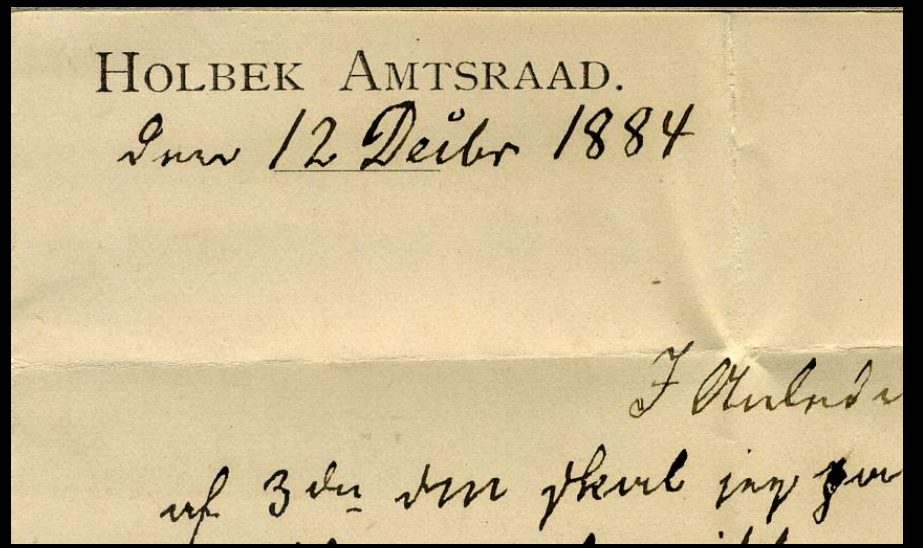 HOLBEK AMTSRAAD.
den 12 Decbr 1884
I Anled
af 3die dM skal jeg